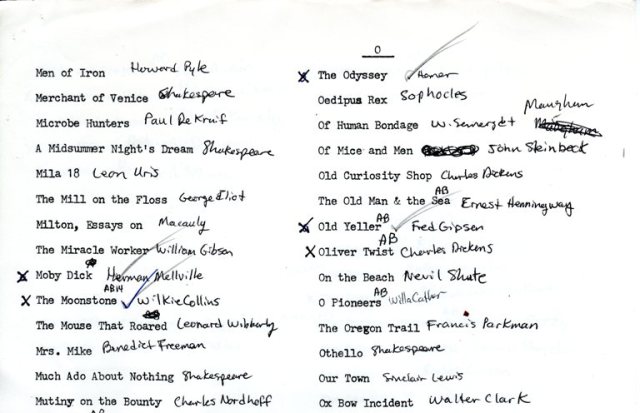 Men of Iron Howard Pyle
Merchant of Venice Shakespeare
Microbe Hunters Paul De Kruif
A Midsummer Night's Dream Shakespeare
Mila 18 Leon Uris
The Mill on the Floss George Eliot
Milton, Essays on Macauly
The Miracle Worker William Gibson
X Moby Dick Herman Mellville
AB14
X The Moonstone ✓ Wilkie Collins
The Mouse That Roared Leonard Wibberly
Mrs. Mike Benedict Freeman
Much Ado About Nothing Shakespeare
Mutiny on the Bounty Charles Nordhoff
AB
O
X The Odyssey ✓ Homer
Oedipus Rex Sophocles
Maughum
Of Human Bondage W. Somerset
Of Mice and Men John Steinbeck
Old Curiosity Shop Charles Dickens
AB
The Old Man & the Sea Ernest Henningway
AB
X Old Yeller ✓ Fred Gipson
AB
X Oliver Twist Charles Dickens
On the Beach Nevil Shute
AB
O Pioneers Willa Cather
The Oregon Trail Francis Parkman
Othello Shakespeare
Our Town Sinclair Lewis
Ox Bow Incident Walter Clark